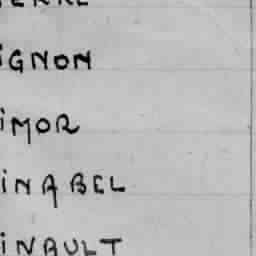 iGNON
iMOR
iNABEL
iNAULT